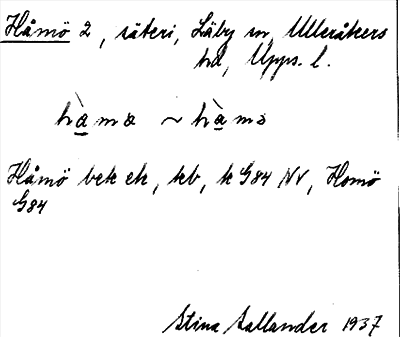 Håmö 2, säteri, Läby sn, Ulleråkers
hd, Upps. l.
hàmə ~ hàmə
Håmö bek ek, kb, k G84 NV, Homö
G84
Stina Sallander 1937